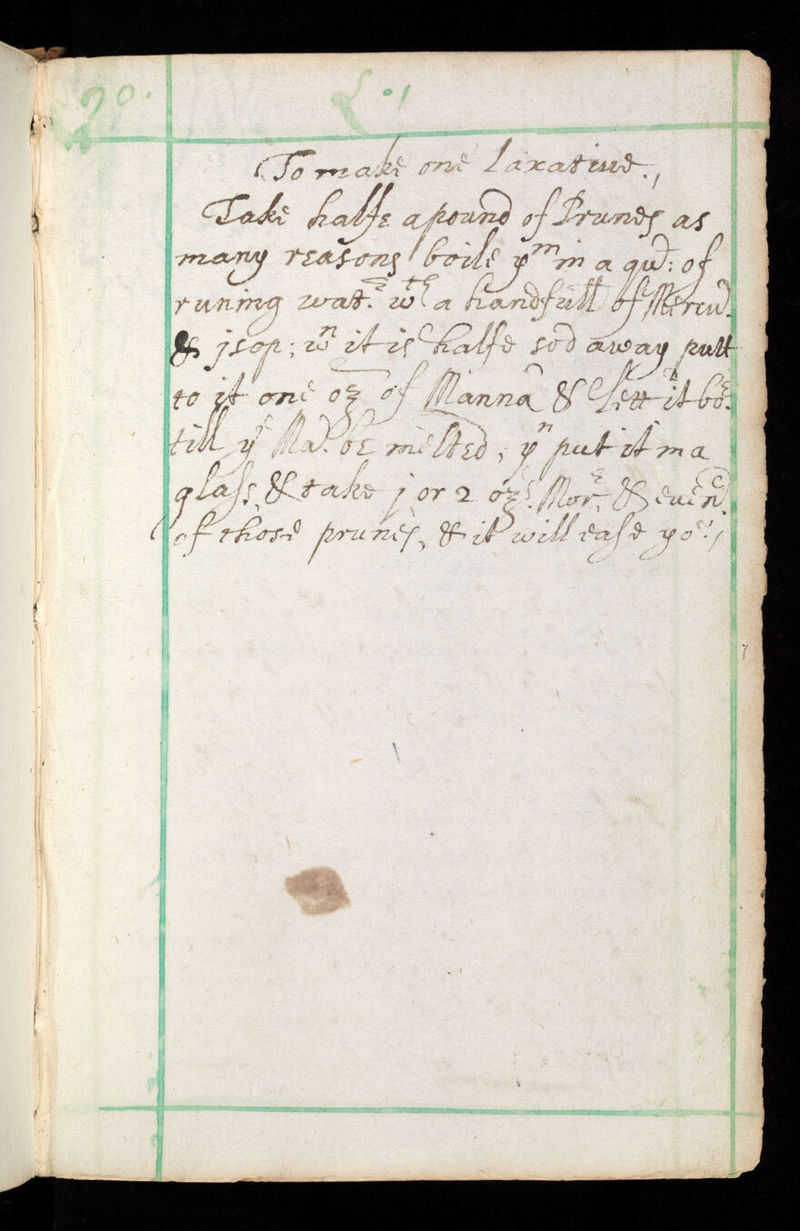 20. L.
To make one Laxatiue.,
Take halfe a pound of Prunes as
many reasons boile ym in a qu͛d: of
runing wat.r wth a handfull of Mercu͛.
& jsop; wn it is halfe sod away putt
to it one oz of Manna & Lett it bo.
till ye Ma͛. be melted; yn put it in a
glass, & take j or 2 ozs. Mor. & euen͛.
of those prunes, & it will ease yo.,